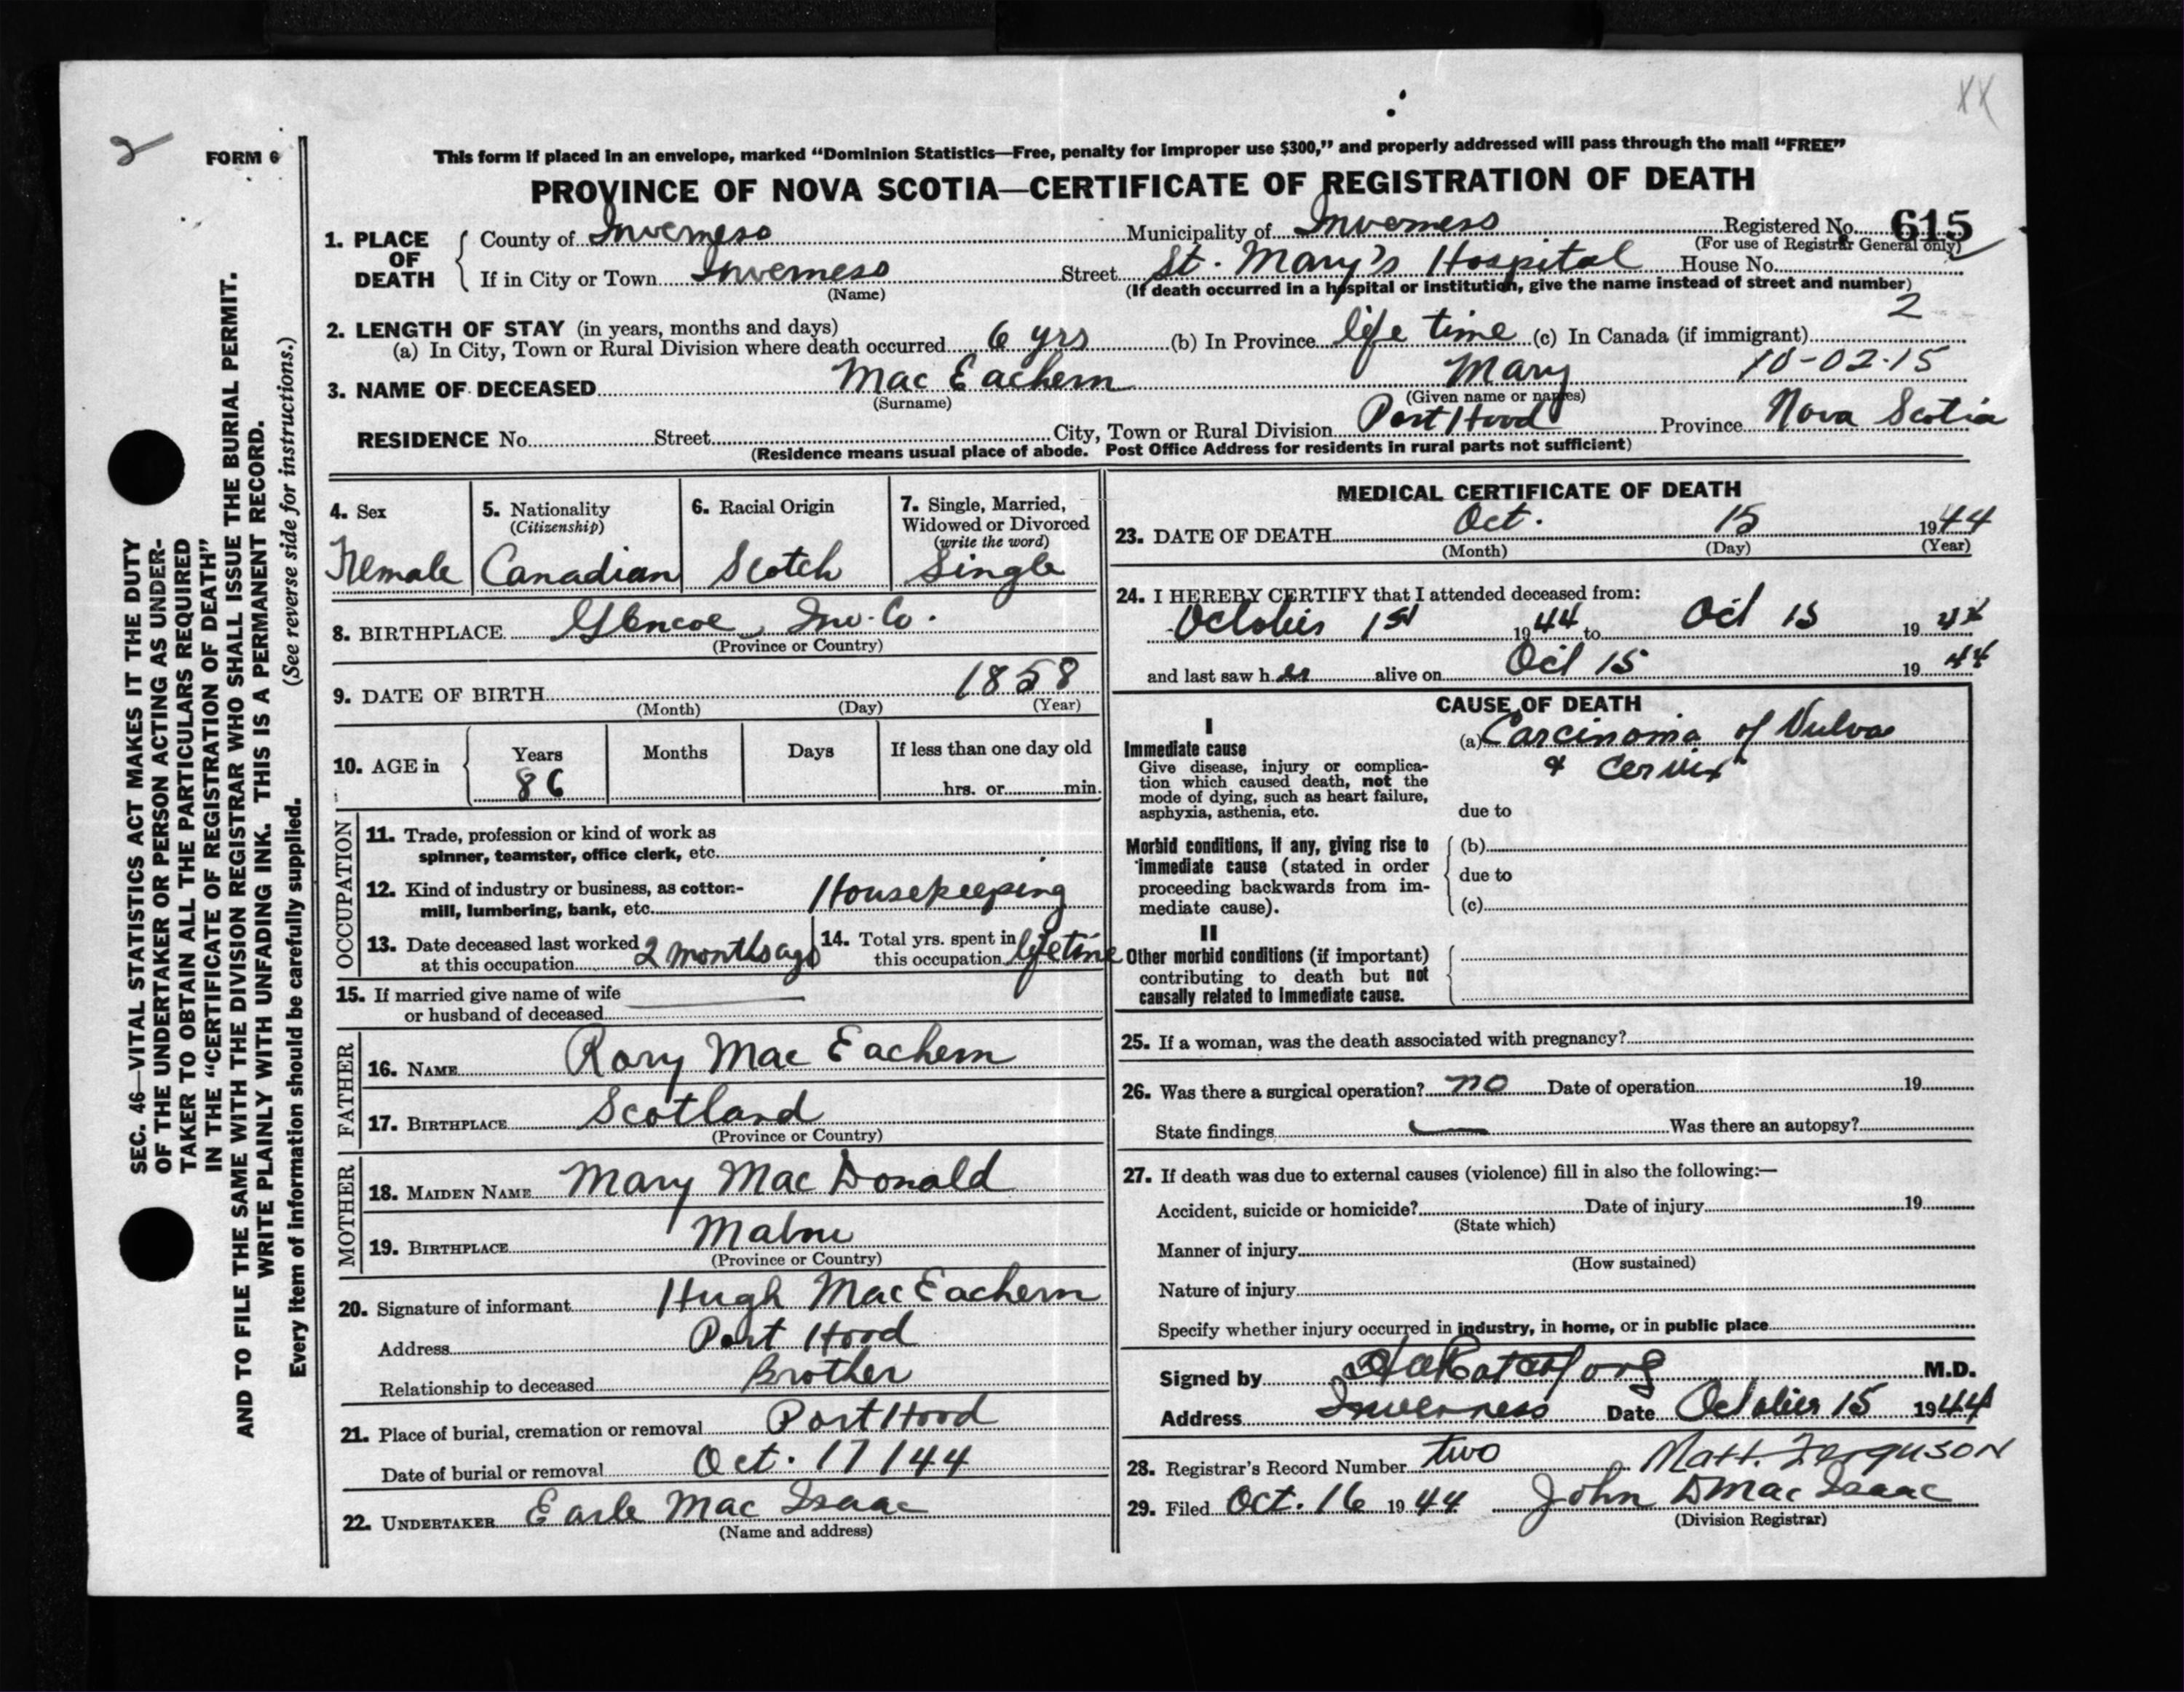 XX
2
FORM 6
This form if placed in an envelope, marked “Dominion Statistics—Free, penalty for improper use $300,” and properly addressed will pass through the mail “FREE”
PROVINCE OF NOVA SCOTIA—CERTIFICATE OF REGISTRATION OF DEATH
SEC. 46—VITAL STATISTICS ACT MAKES IT THE DUTY
OF THE UNDERTAKER OR PERSON ACTING AS UNDER-
TAKER TO OBTAIN ALL THE PARTICULARS REQUIRED
IN THE “CERTIFICATE OF REGISTRATION OF DEATH”
AND TO FILE THE SAME WITH THE DIVISION REGISTRAR WHO SHALL ISSUE THE BURIAL PERMIT.
WRITE PLAINLY WITH UNFADING INK. THIS IS A PERMANENT RECORD.
Every item of information should be carefully supplied. (See reverse side for instructions.)
1. PLACE OF DEATH
County of Inverness Municipality of Inverness Registered No. 615
(For use of Registrar General only)
If in City or Town Inverness Street St. Mary's Hospital House No.
(Name) (If death occurred in a hospital or institution, give the name instead of street and number)
2
2. LENGTH OF STAY (in years, months and days)
(a) In City, Town or Rural Division where death occurred 6 yrs (b) In Province life time (c) In Canada (if immigrant)
10-02-15
3. NAME OF DECEASED Mac Eachern Mary
(Surname) (Given name or names)
RESIDENCE No. Street City, Town or Rural Division Port Hood Province Nova Scotia
(Residence means usual place of abode. Post Office Address for residents in rural parts not sufficient)
4. Sex
Female
5. Nationality
(Citizenship)
Canadian
6. Racial Origin
Scotch
7. Single, Married,
Widowed or Divorced
(write the word)
Single
8. BIRTHPLACE Glencoe, Inv. Co.
(Province or Country)
9. DATE OF BIRTH 1858
(Month) (Day) (Year)
10. AGE in
Years Months Days If less than one day old
86 hrs. or min.
OCCUPATION
11. Trade, profession or kind of work as
spinner, teamster, office clerk, etc.
12. Kind of industry or business, as cotton-
mill, lumbering, bank, etc. Housekeeping
13. Date deceased last worked
at this occupation 2 months ago
14. Total yrs. spent in
this occupation lifetime
15. If married give name of wife
or husband of deceased
FATHER
16. NAME Rory Mac Eachern
17. BIRTHPLACE Scotland
(Province or Country)
MOTHER
18. MAIDEN NAME Mary Mac Donald
19. BIRTHPLACE
(Province or Country)
20. Signature of informant Hugh MacEachern
Address Port Hood
Relationship to deceased Brother
21. Place of burial, cremation or removal Port Hood
Date of burial or removal Oct. 17/44
22. UNDERTAKER Earle Mac Isaac
(Name and address)
MEDICAL CERTIFICATE OF DEATH
23. DATE OF DEATH Oct. 15 1944
(Month) (Day) (Year)
24. I HEREBY CERTIFY that I attended deceased from:
October 1st 1944 to Oct 15 1944
and last saw her alive on Oct 15 1944
CAUSE OF DEATH
I
Immediate cause
Give disease, injury or complica-
tion which caused death, not the
mode of dying, such as heart failure,
asphyxia, asthenia, etc.
(a) Carcinoma of Vulva
& Cervix
due to
Morbid conditions, if any, giving rise to
immediate cause (stated in order
proceeding backwards from im-
mediate cause).
(b)
due to
(c)
II
Other morbid conditions (if important)
contributing to death but not
causally related to immediate cause.
25. If a woman, was the death associated with pregnancy?
26. Was there a surgical operation? no Date of operation 19
State findings Was there an autopsy?
27. If death was due to external causes (violence) fill in also the following:—
Accident, suicide or homicide? Date of injury 19
(State which)
Manner of injury
(How sustained)
Nature of injury
Specify whether injury occurred in industry, in home, or in public place
Signed by M.D.
Address Inverness Date October 15 1944
28. Registrar's Record Number two Matt. Ferguson
29. Filed Oct. 16 1944 John D Mac Isaac
(Division Registrar)